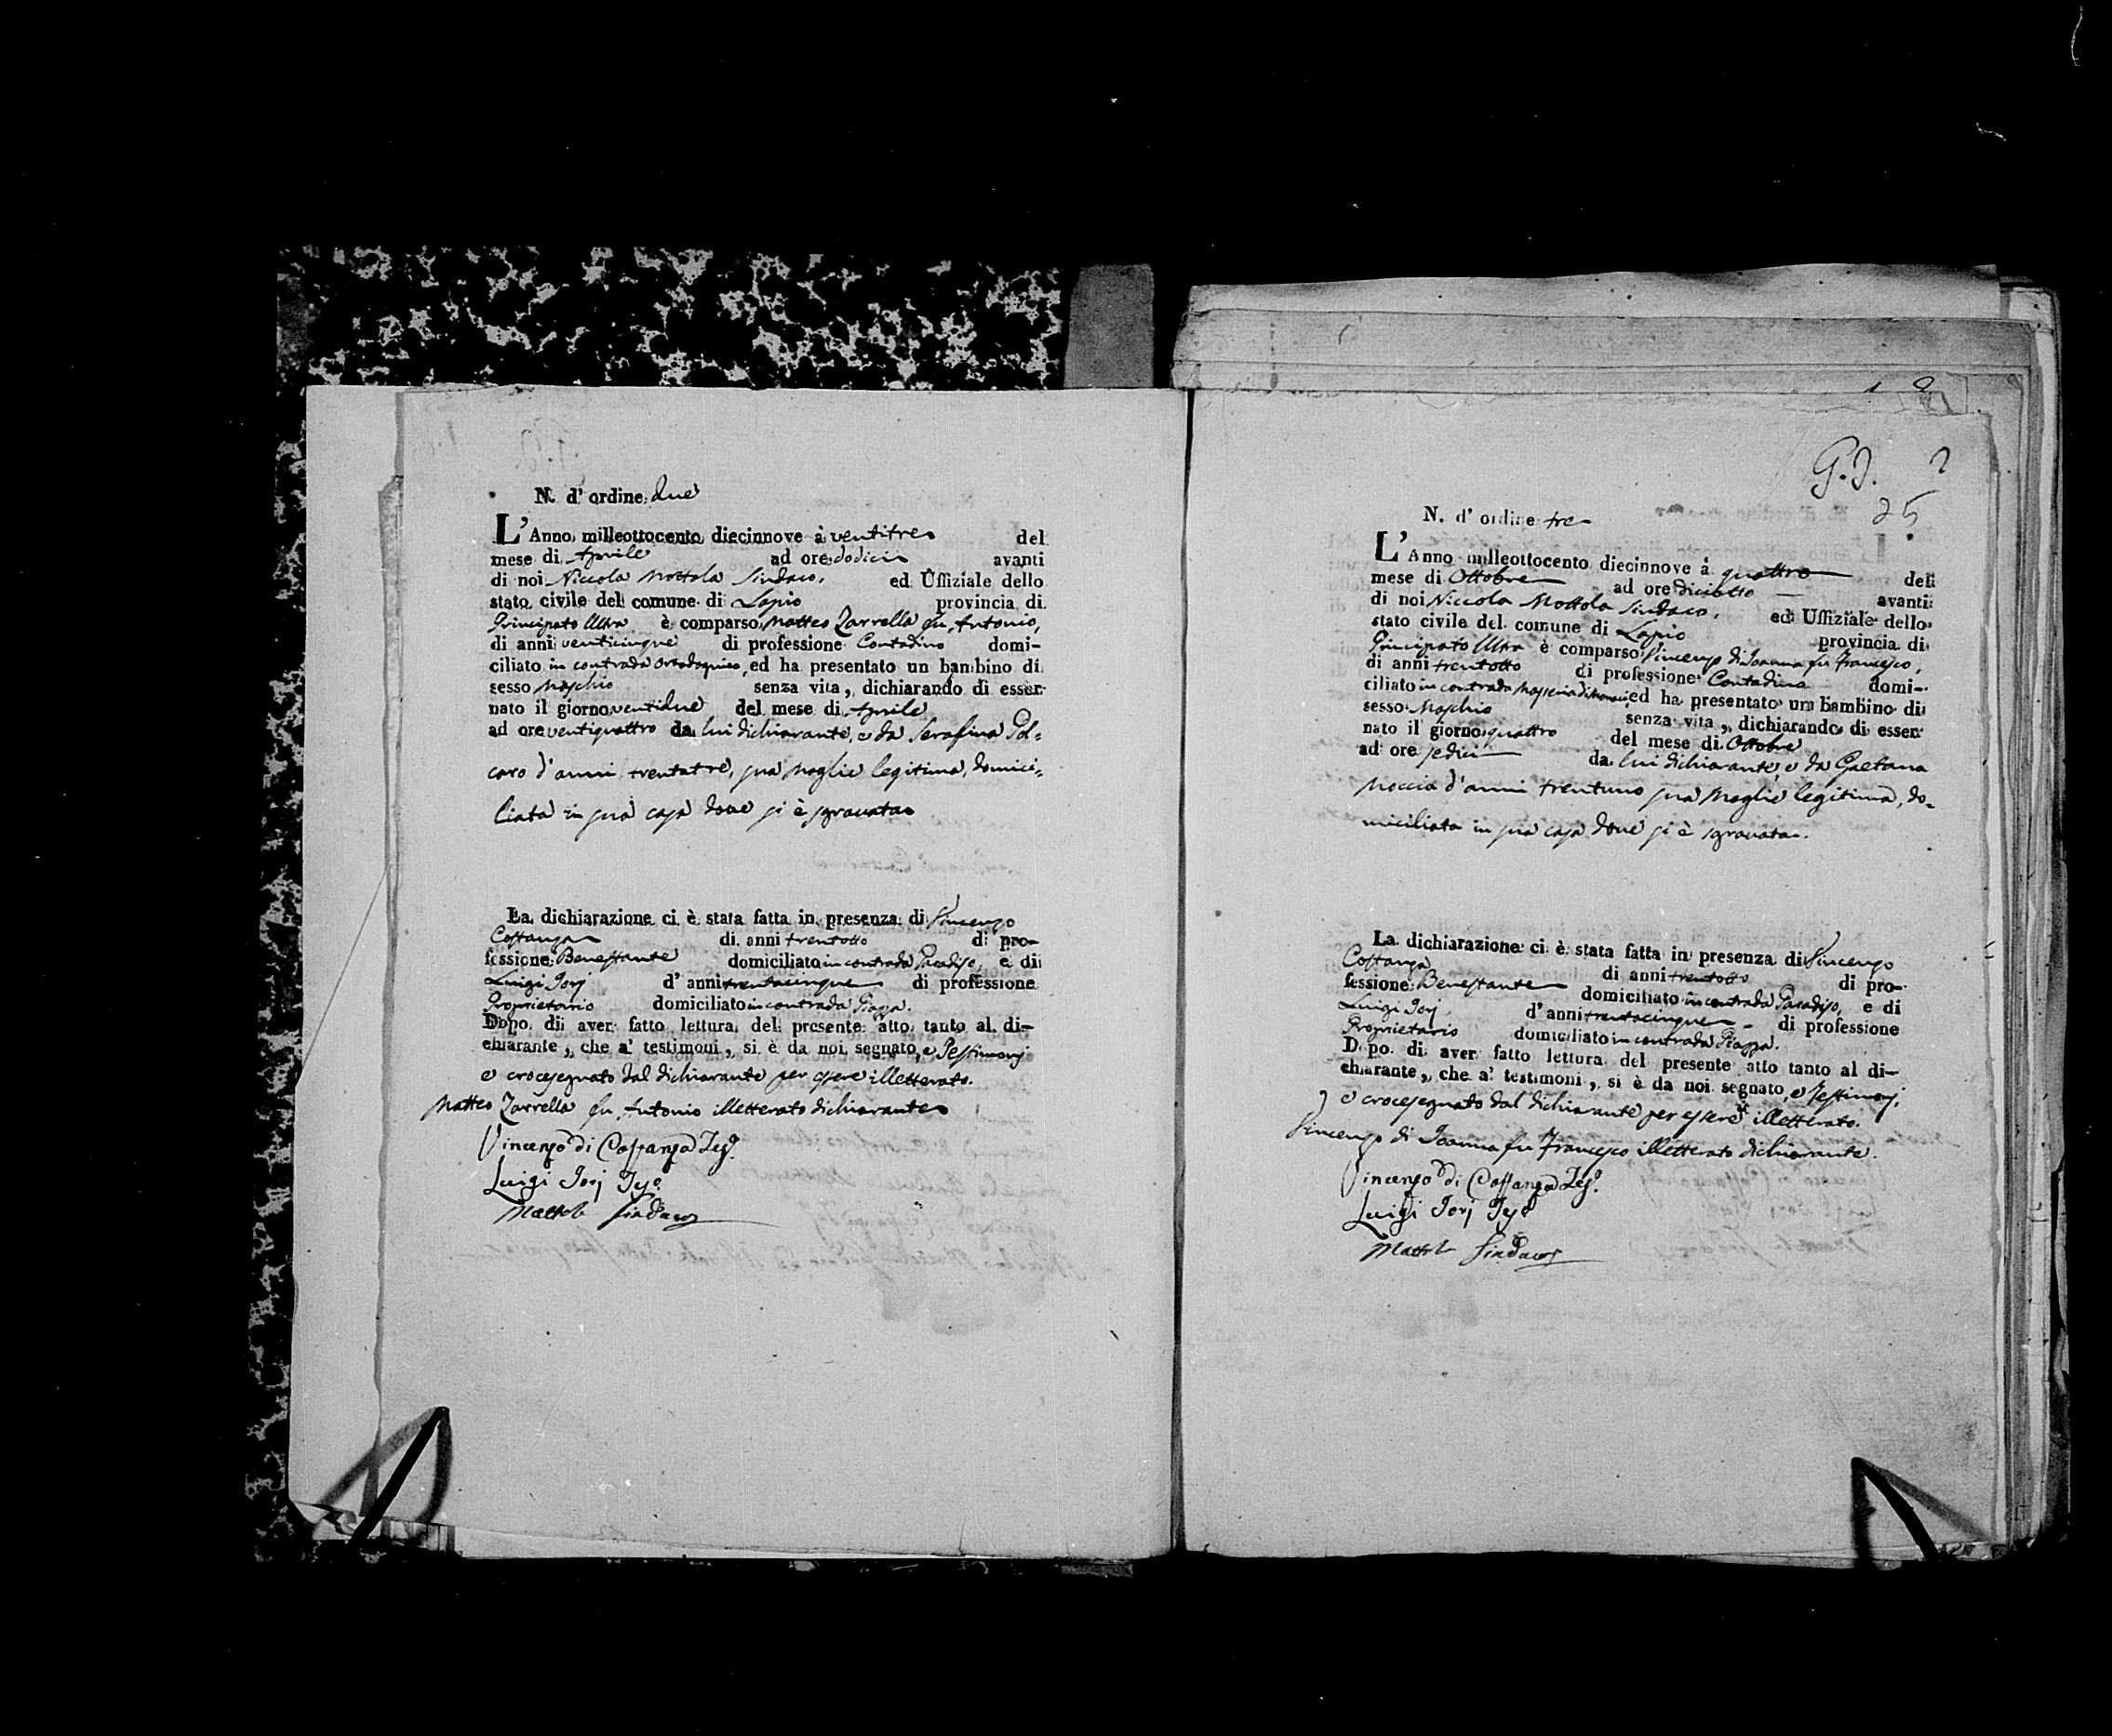 N. d' ordine due
L'Anno milleottocento diecinnove à ventitre del
mese di Aprile ad ore dodici avanti
di noi Niccola Mottola Sindaco, ed Uffiziale dello
stato civile del comune di Lapio provincia di
Principato Ultra è comparso Matteo Zarrella fu Antonio,
di anni venticinque di professione Contadino domi-
ciliato in contrada ed ha presentato un bambino di
sesso Maschio senza vita, dichiarando di esser
nato il giorno ventidue del mese di Aprile
ad ore ventiquattro da lui dichiarante, e da Serafina
caro d'anni trentatre, sua Moglie legitima, domici=
liata in sua casa dove si è sgravata
La dichiarazione ci è stata fatta in presenza di Vincenzo
Costanza di anni trentotto di pro-
fessione Benestante domiciliato in contrada Paradiso, e di
Luigi Iorj d' anni trentacinque di professione
Proprietario domiciliato in contrada Piazza.
Dopo di aver fatto lettura del presente atto tanto al di-
chiarante, che a' testimoni, si è da noi segnato, e Testimonj
e crocesegnato dal dichiarante per essere illetterato.
Matteo Zarrella fu Antonio illetterato dichiarante
Vincenzo di Costanza Tes.º
Luigi Iorj Tes.º
Mottola Sindaco
G. J. 2
25
N. d' ordine tre
L'Anno milleottocento diecinnove à quattro del
mese di Ottobre ad ore diciotto avanti
di noi Niccola Mottola Sindaco, ed Uffiziale dello
stato civile del comune di Lapio provincia di
Principato Ultra è comparso Vincenzo di Ioanna fu Francesco,
di anni trentotto di professione Contadino domi-
ciliato in contrada ed ha presentato un bambino di
sesso Maschio senza vita, dichiarando di esser
nato il giorno quattro del mese di Ottobre
ad ore sedici da lui dichiarante, e da Gaetana
Moccia d'anni trentuno sua Moglie legitima, do=
miciliata in sua casa dove si è sgravata.
La dichiarazione ci è stata fatta in presenza di Vincenzo
Costanza di anni trentotto di pro-
fessione Benestante domiciliato in contrada Paradiso, e di
Luigi Iorj d' anni trentacinque di professione
Proprietario domiciliato in contrada Piazza.
Dopo di aver fatto lettura del presente atto tanto al di-
chiarante, che a' testimoni, si è da noi segnato, e Testimonj,
e crocesegnato dal dichiarante per essere illetterato.
Vincenzo di Ioanna fu Francesco illetterato dichiarante.
Vincenzo di Costanza Tes.º
Luigi Iorj Tes.º
Mottola Sindaco